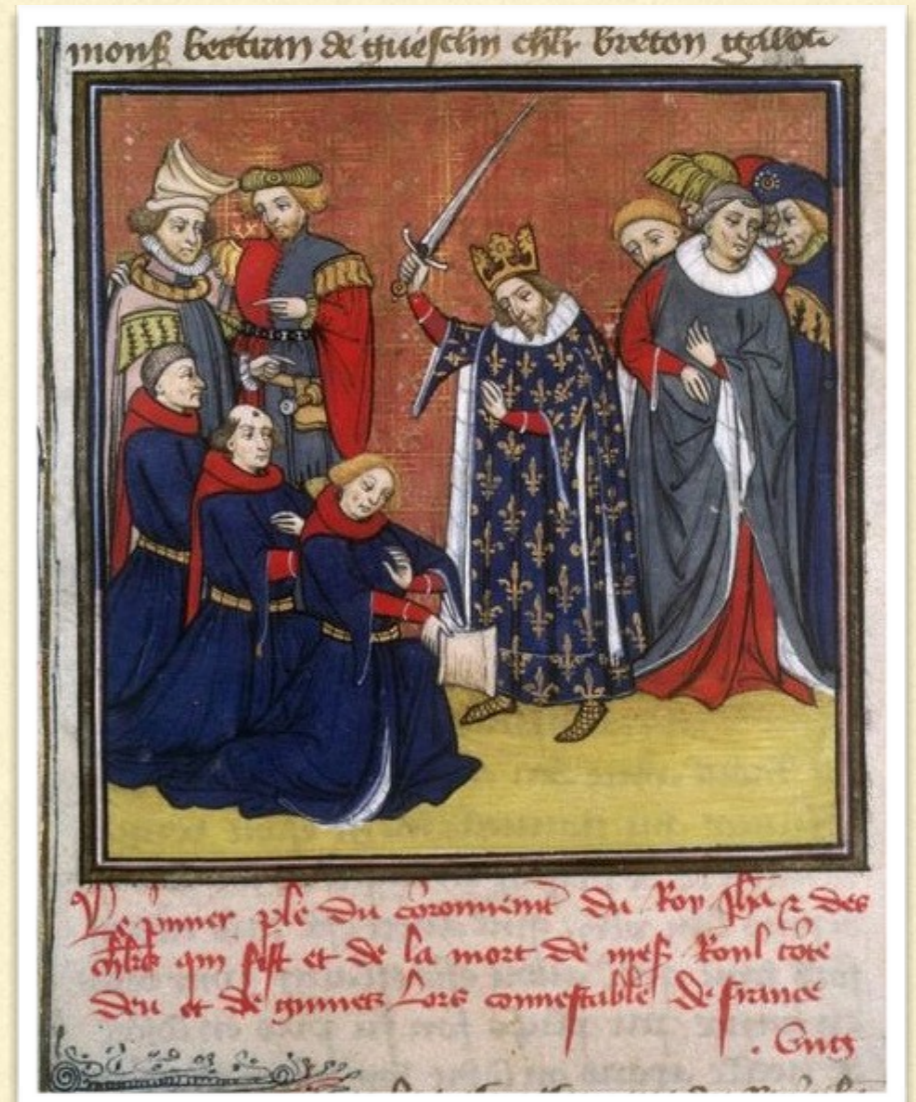 mons bertran de guesclin chlr breton
Le pmier ple du coronnemt du Roy Jha & des
chlrs qui fist et de la mort de mes Roul côte
deu et de guines Lors connestable de france